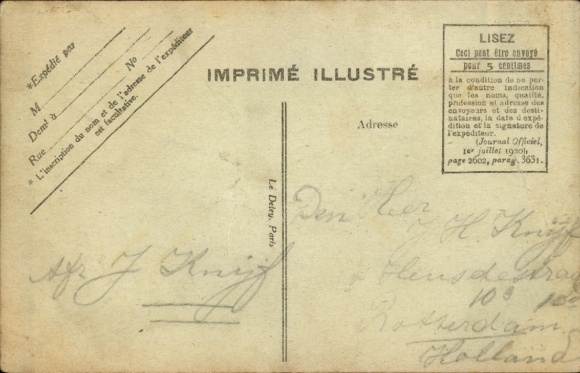 *Expédié par
M
No
Demt à
Rue
* L'inscription du nom et de l'adresse de l'expéditeur
est facultative.
IMPRIMÉ ILLUSTRÉ
LISEZ
Ceci peut être envoyé
pour 5 centimes
à la condition de ne por-
ter d'autre indication
que les noms, qualité,
profession et adresse des
envoyeurs et des desti-
nataires, la date d'expé-
dition et la signature de
l'expéditeur.
(Journal Officiel,
1er juillet 1920),
page 2602, parag. 3631.
Adresse
Le Deley, Paris
Afz J Knijf
Den Heer
J. H. Knijf
108
Rotterdam
Holland